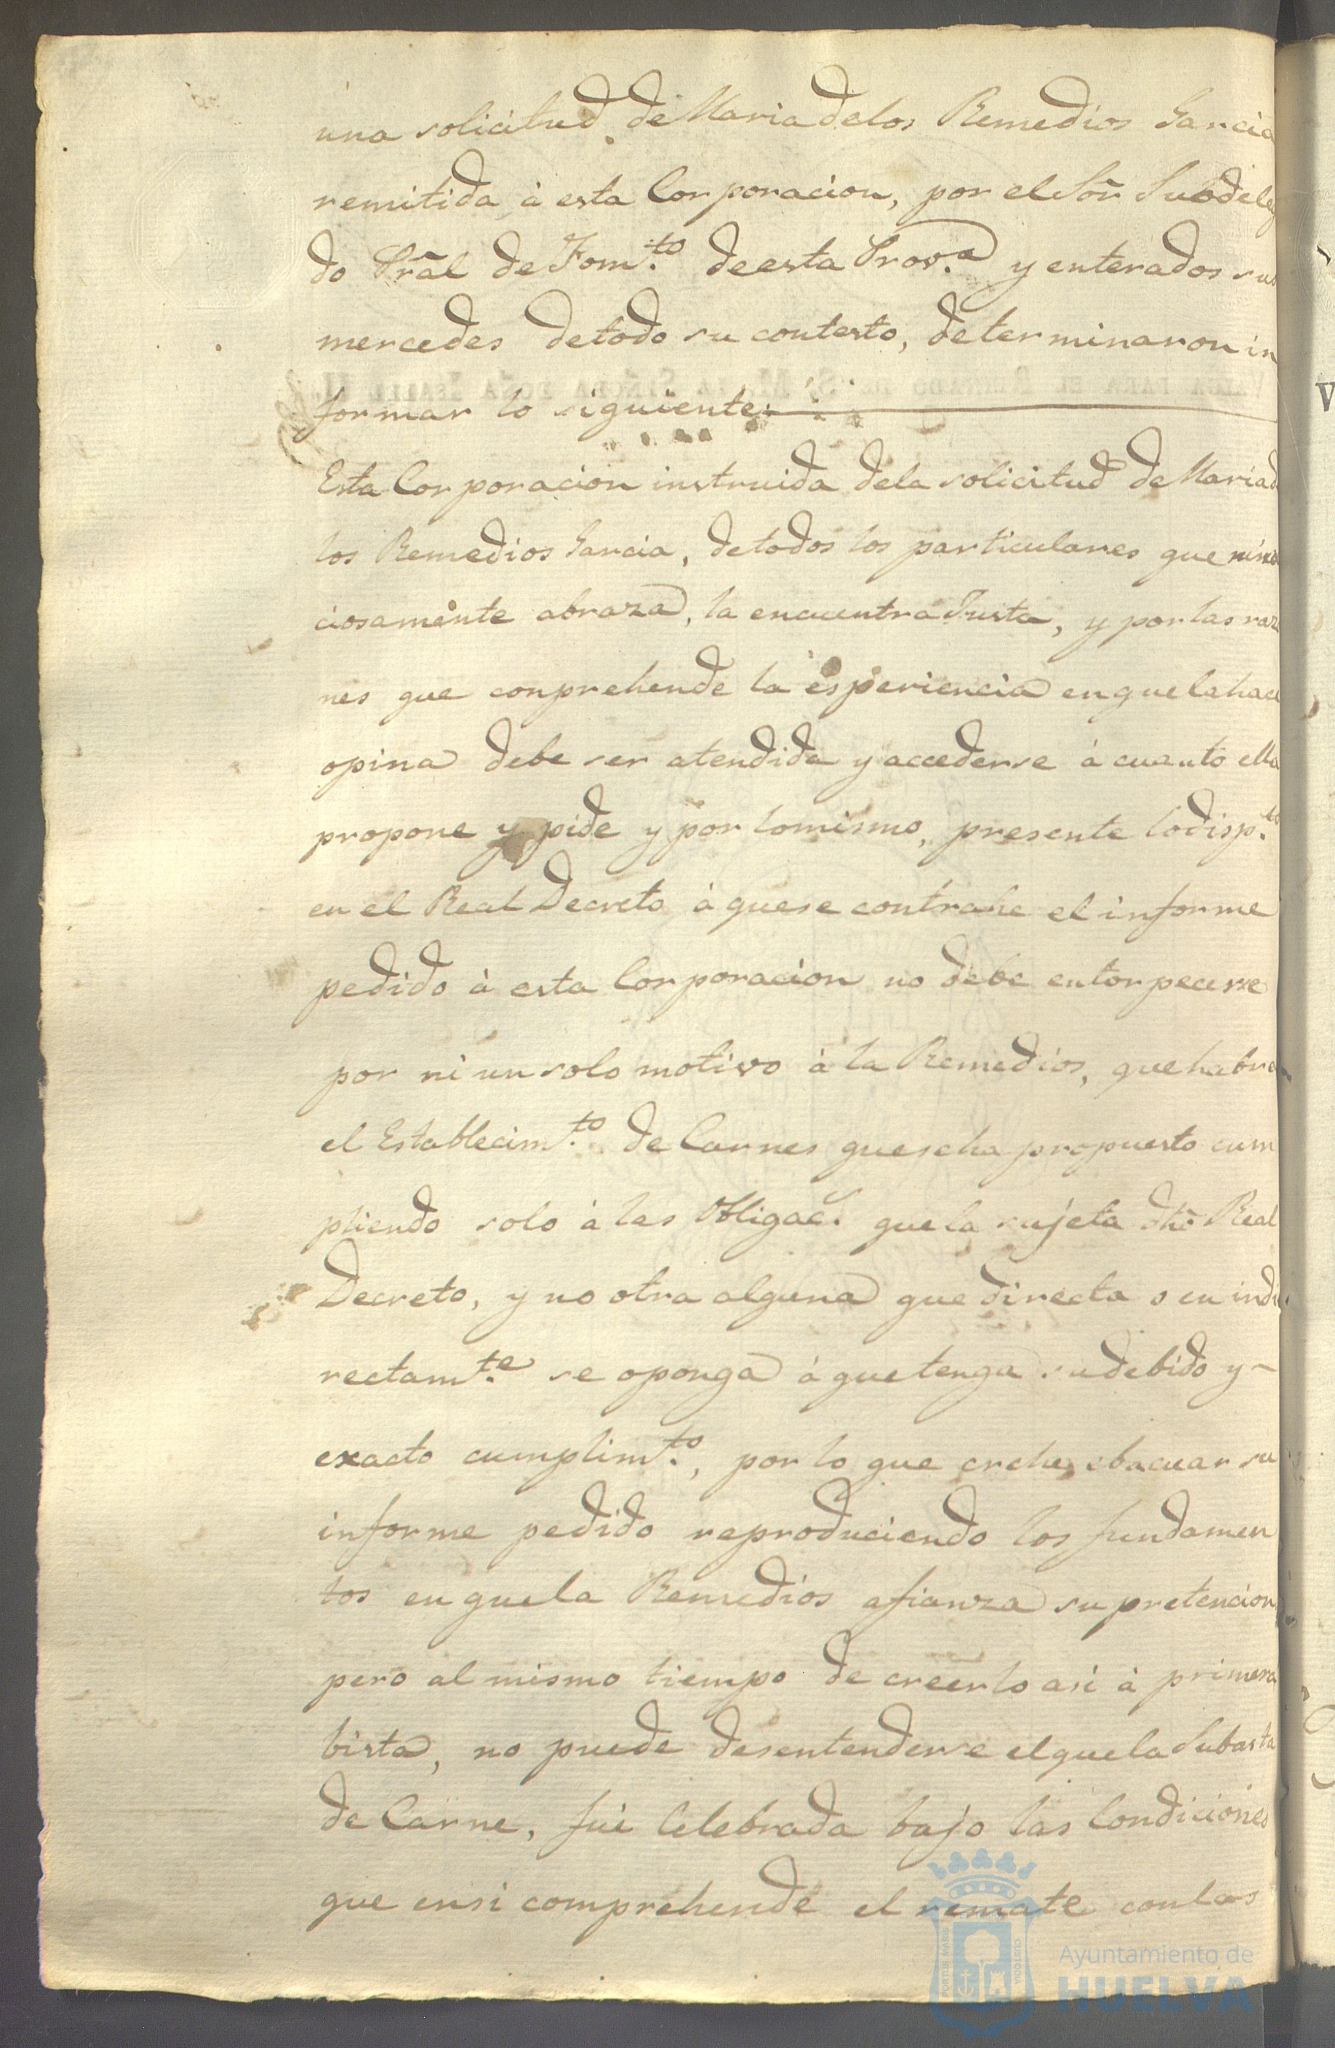 una solicitud de Maria delos Remedios Garcia
remitida à esta Corporacion, por el Sor̃ Subdelega
do Prãl de Fom.to de esta Prov.a y enterados sus
mercedes detodo su contesto, determinaron in
formar lo siguiente.
Esta Corporacion instruida dela solicitud de Maria de
los Remedios Garcia, detodos los particulares que minu
ciosamente abraza, la encuentra Justa, y por las razo
nes que conprehende la esperiencia en que la hace
opina debe ser atendida y accederse à cuanto ella
propone y pide y por lo mismo, presente lo disp.to
en el Real Decreto à que se contrahe el informe
pedido à esta Corporacion no debe entorpecerse
por ni un solo motivo à la Remedios, que habra
el Establecim.to de Carnes que se ha propuesto cum
pliendo solo à las Obligac.s que la sujeta dho Real
Decreto, y no otra alguna que directa o en indi
rectam.te se oponga à que tenga su debido y
exacto cumplim.to, por lo que crehe ebacuar su
informe pedido reproduciendo los fundamen
tos en que la Remedios afianza su pretencion,
pero al mismo tiempo de creerlo asi à primera
bista, no puede desentenderse el que la Subasta
de Carne, fue Celebrada bajo las Condiciones
que ensi comprehende el remate con las
Ayuntamiento de
HUELVA